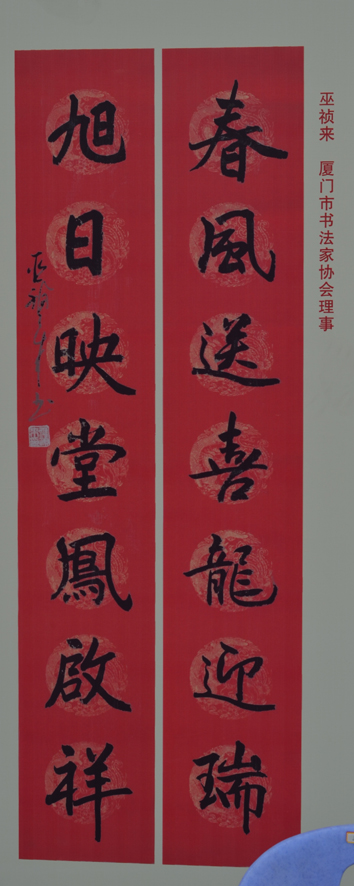 春風送喜龍迎瑞
旭日映堂鳳啟祥
巫祯来 厦门市书法家协会理事